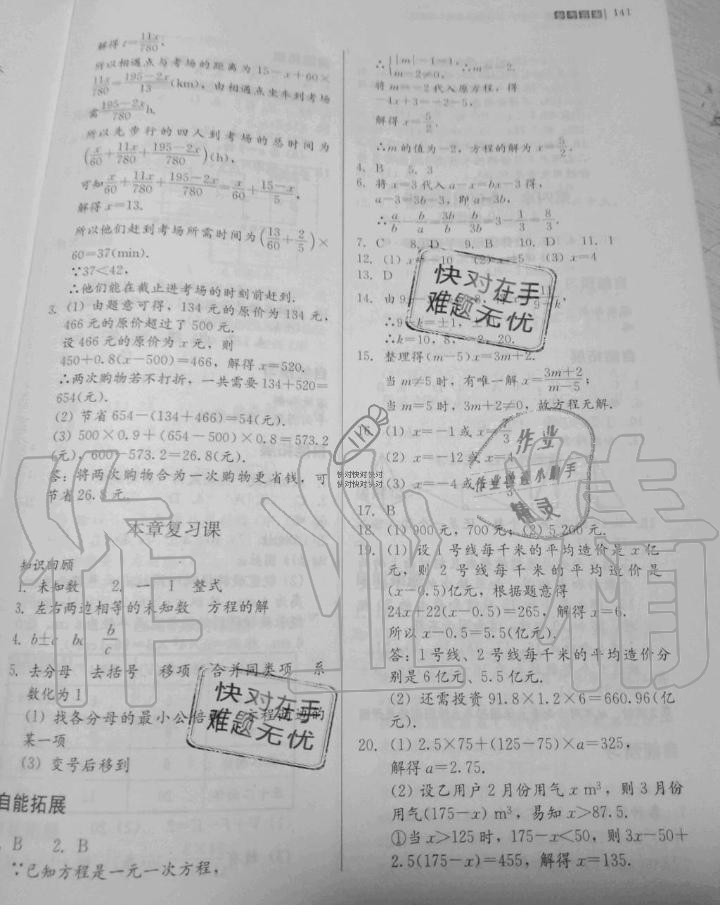 141
解得 t=11x/780,
所以相遇点与考场的距离为 15-x+60×
11x/780=195-2x/13(km),由相遇点坐车到考场
需195-2x/780 h.
所以先步行的四人到考场的总时间为
(x/60+11x/780+195-2x/780)(h),
可知x/60+11x/780+195-2x/780=x/60+15-x/5,
解得 x=13.
所以他们赶到考场所需时间为(13/60+2/5)×
60=37(min).
∵37<42,
∴他们能在截止进考场的时刻前赶到.
3. (1) 由题意可得, 134 元的原价为 134 元,
466 元的原价超过了 500 元.
设 466 元的原价为 x 元, 则
450+0.8(x-500)=466, 解得 x=520.
∴两次购物若不打折, 一共需要 134+520=
654(元).
(2) 节省 654-(134+466)=54(元).
(3) 500×0.9+(654-500)×0.8=573.2
(元), 600-573.2=26.8(元).
答: 将两次购物合为一次购物更省钱, 可
节省 26.8 元.
本章复习课
知识回顾
1. 未知数 2. 一 1 整式
3. 左右两边相等的未知数 方程的解
4. b±c bc b/c
5. 去分母 去括号 移项 合并同类项 系
数化为 1
(1) 找各分母的最小公倍 的
某一项
(3) 变号后移到
自能拓展
B 2. B
∵已知方程是一元一次方程,
∴{|m|-1=1, m-2≠0, ∴m=-2.
将 m=-2 代入原方程, 得
-4x+3=-2-5,
解得 x=5/2.
∴m 的值为-2, 方程的解为 x=5/2.
4. B 5. 3
6. 将 x=3 代入 a-x=bx-3 得,
a-3=3b-3, 即 a=3b,
∴a/b-b/a=3b/b-b/3b=3-1/3=8/3.
7. C 8. D 9. B 10. D 11. 1
12. (1) x=10 (2) x=5 (3) x=4
13. D
14. 由 9
∴9-k=±1,
∴k=10, 8, -2, 20.
15. 整理得(m-5)x=3m+2.
当 m≠5 时, 有唯一解 x=3m+2/m-5;
当 m=5 时, 3m+2≠0, 故方程无解.
16. (1) x=-1 或 x=
(2) x=-12 或
(3) x=-4 或
17. B
18. (1) 900 元, 700 元; (2) 5 200 元.
19. (1) 设 1 号线每千米的平均造价是 x 亿
元, 则 2 号线每千米的平均造价是
(x-0.5)亿元, 根据题意得
24x+22(x-0.5)=265, 解得 x=6.
所以 x-0.5=5.5(亿元).
答: 1 号线、2 号线每千米的平均造价分
别是 6 亿元、5.5 亿元.
(2) 还需投资 91.8×1.2×6=660.96(亿
元).
20. (1) 2.5×75+(125-75)×a=325,
解得 a=2.75.
(2) 设乙用户 2 月份用气 x m³, 则 3 月份
用气(175-x) m³, 易知 x>87.5.
①当 x>125 时, 175-x<50, 则 3x-50+
2.5(175-x)=455, 解得 x=135.
快对在手
难题无忧
快对在手
难题无忧
快对快对快对
快对快对快对
作业
精灵
作业精